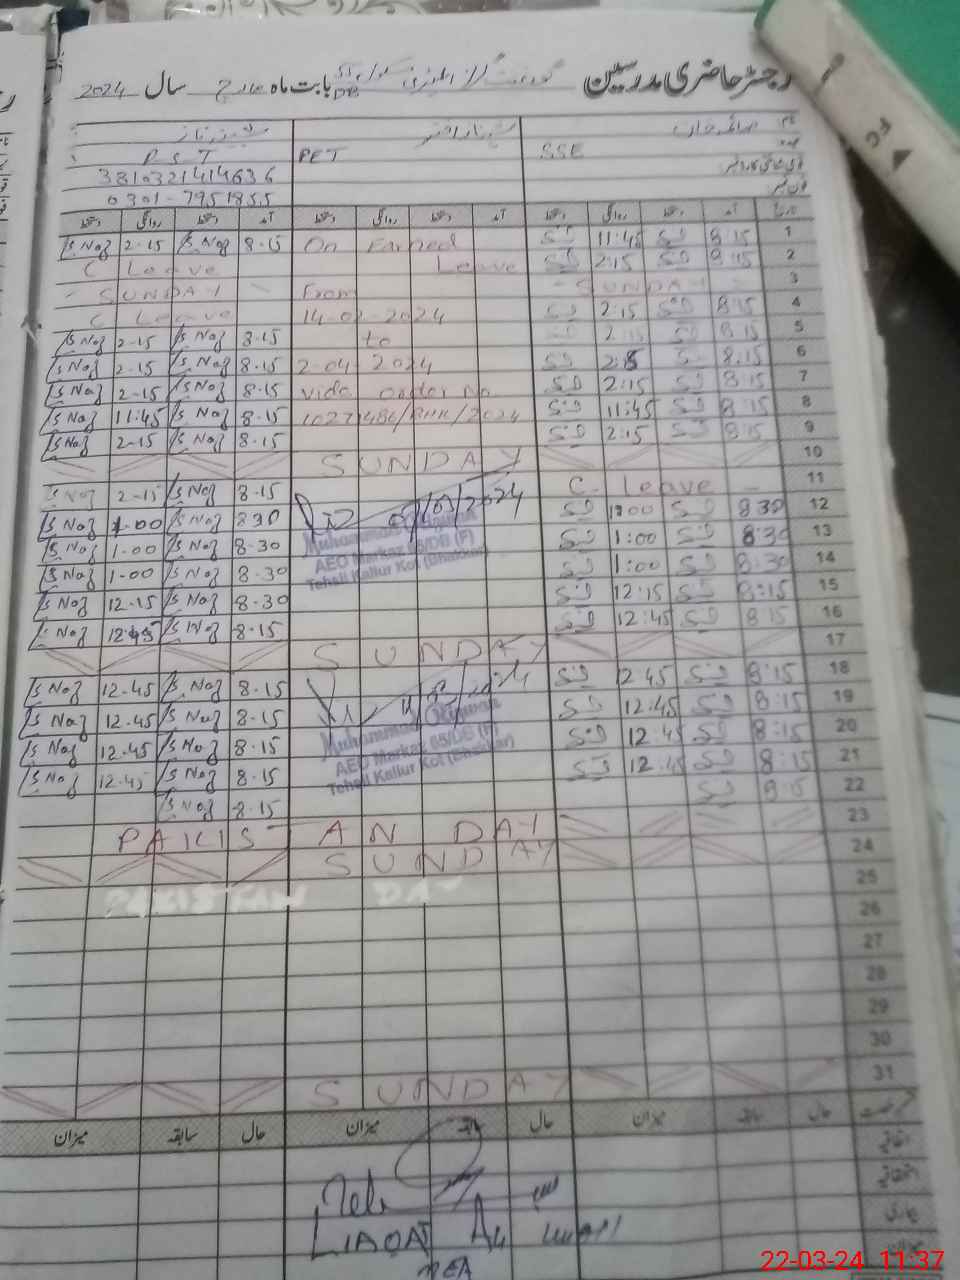 رجسٹر حاضری مدرسین گورنمنٹ گرلز ایلیمنٹری سکول 65 DB بابت ماہ مارچ سال 2024
نام
شہناز اختر
عہدہ SSE PET P S T
شناختی کارڈ نمبر 3810321414636
فون نمبر 0301-7951855
تاریخ آمد دستخط روانگی دستخط آمد دستخط روانگی دستخط آمد دستخط روانگی دستخط
S Naz 2-15 S Naz 8-15 On Earned 11:45 8:15 1
C Leave Leave 2:15 8:15 2
- SUNDAY - From - SUNDAY - 3
C Leave 14-02-2024 2:15 8:15 4
S Naz 2-15 S Naz 8-15 to 2:15 8:15 5
S Naz 2-15 S Naz 8.15 2-04 2024 8:15 6
S Naz 2-15 S Naz 8-15 vide order No 2:15 8:15 7
S Naz 11:45 S Naz 8-15 11:45 8:15 8
S Naz 2-15 S Naz 8-15 2:15 8:15 9
SUNDAY 10
S Naz 2-15 S Naz 8-15 C. Leave - 11
S Naz 1-00 S Naz 8 30 8 30 12
S Naz 1-00 S Naz 8-30 1:00 8:30 13
S Naz 1-00 S Naz 8-30 1:00 8:30 14
S Naz 12-15 S Naz 8-30 12:15 8:15 15
S Naz 12-45 S Naz 8-15 12:45 8:15 16
Muhammad
AEO Markaz 65/DB (F)
Tehsil Kallur Kot (Bhakkar)
SUNDAY 17
S Naz 12-45 S Naz 8-15 12 45 8:15 18
S Naz 12-45 S Naz 8-15 12:45 8:15 19
S Naz 12-45 S Naz 8-15 12:45 8:15 20
S Naz 12-45 S Naz 8-15 12:45 8:15 21
S Naz 8-15 22
Muhammad
AEO Markaz 65/DB (F)
Tehsil Kallur Kot (Bhakkar)
PAKISTAN DAY 23
SUNDAY 24
25
PAKISTAN DAY
26
27
28
29
30
SUNDAY 31
رخصت حال سابقہ میزان حال سابقہ میزان حال سابقہ میزان
اتفاقیہ
بیماری
میزان
LIAQAT Ali
22-03-24 11:37